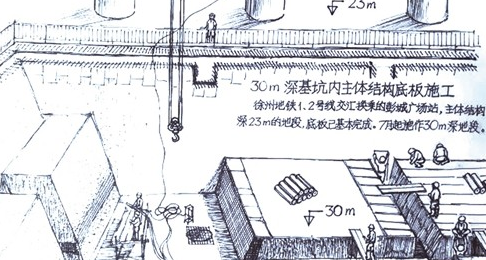 23m
30m深基坑内主体结构底板施工
徐州地铁1、2号线交汇换乘的彭城广场站，主体结构
深23m的地段，底板已基本完成。7月起施作30m深地段。
30m